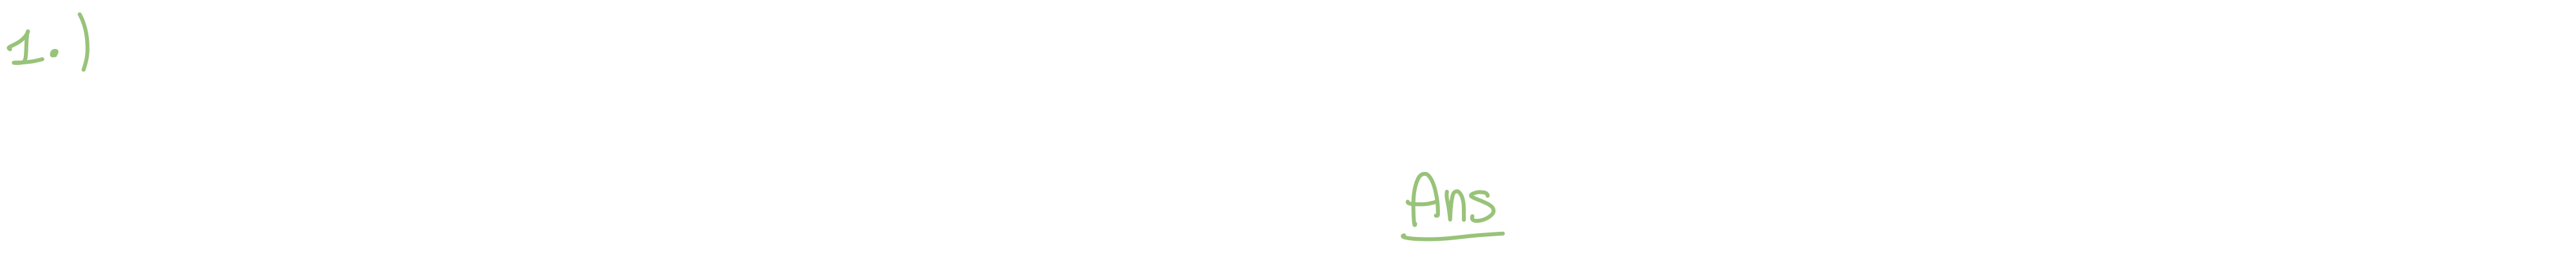 1.)
Ans